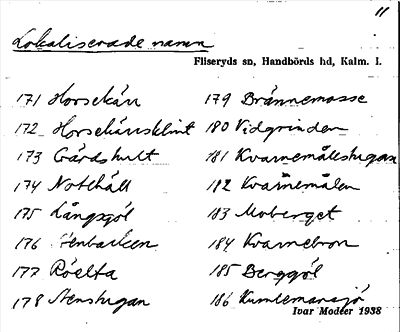 11
Lokaliserade namn
Fliseryds sn, Handbörds hd, Kalm. l.
171 Horsekärr
172 Horsekärrsklint
173 Gårdshult
174 Notehäll
175 Långgöl
176 Stenbacken
177 Röelta
178 Stenstugan
179 Brännemosse
180 Vidgrinden
181 Kvarnemålestugan
182 Kvarnemålen
183 Moberget
184 Kvarnebron
185 Berggöl
186 Kumlemarsjö
Ivar Modéer 1938